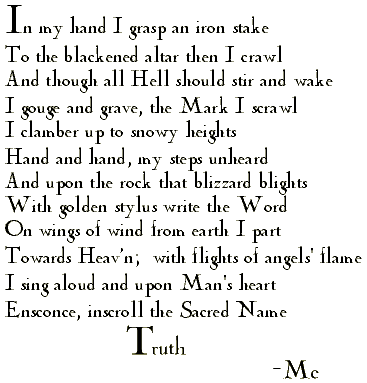 In my hand I grasp an iron stake
To the blackened altar then I crawl
And though all Hell should stir and wake
I gouge and grave, the Mark I scrawl
I clamber up to snowy heights
Hand and hand, my steps unheard
And upon the rock that blizzard blights
With golden stylus write the Word
On wings of wind from earth I part
Towards Heav'n; with flights of angels' flame
I sing aloud and upon Man's heart
Ensconce, inscroll the Sacred Name
Truth
-Mc